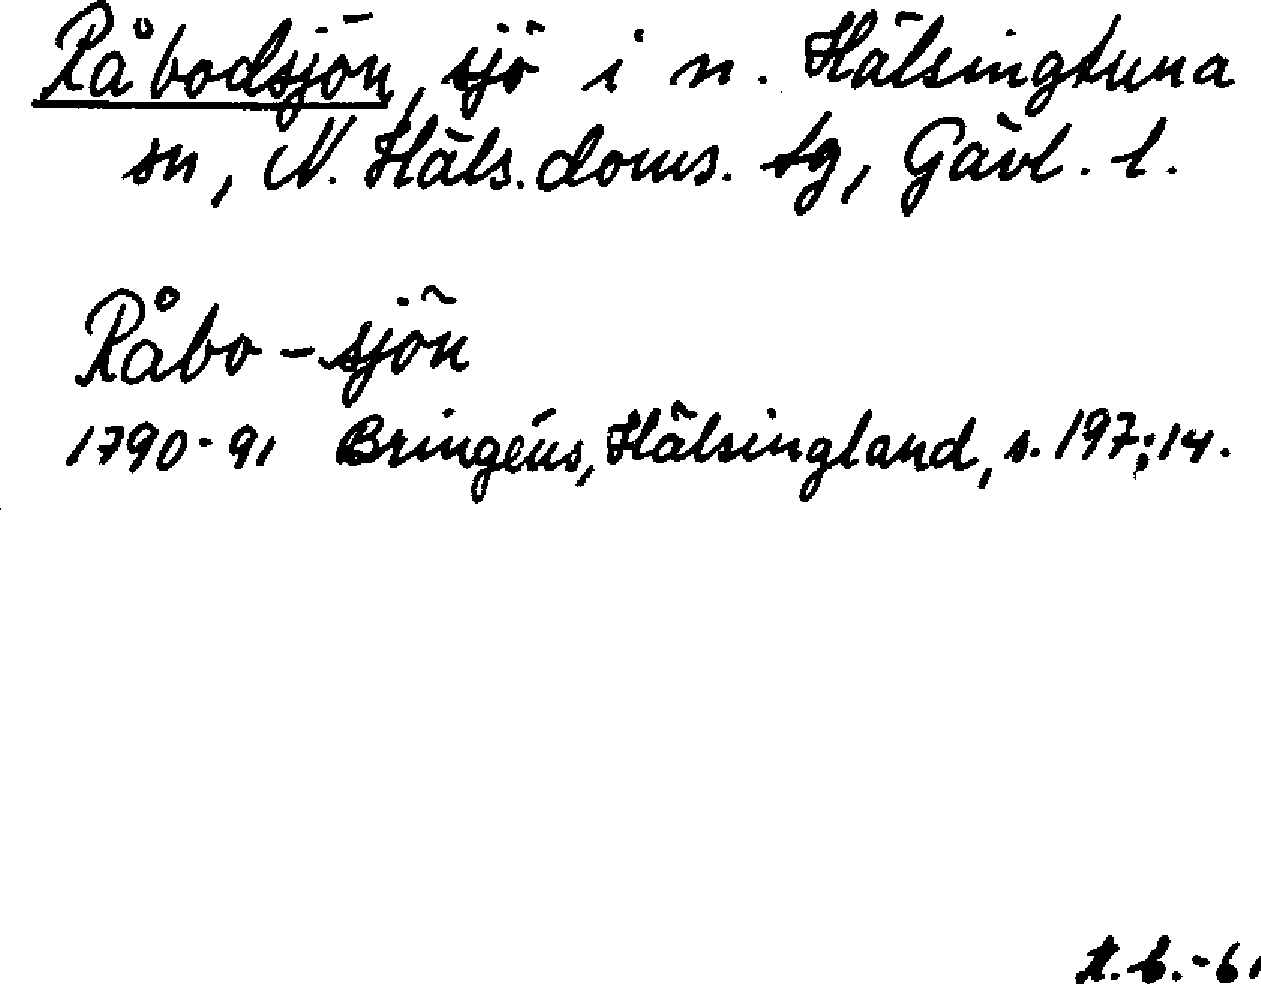 Råbodsjön, sjö i n. Hälsingtuna
sn, N. Häls. doms. tg, Gävl. l.
Råbo-sjön
1790-91 Bringéus, Hälsingland, s. 197:14.